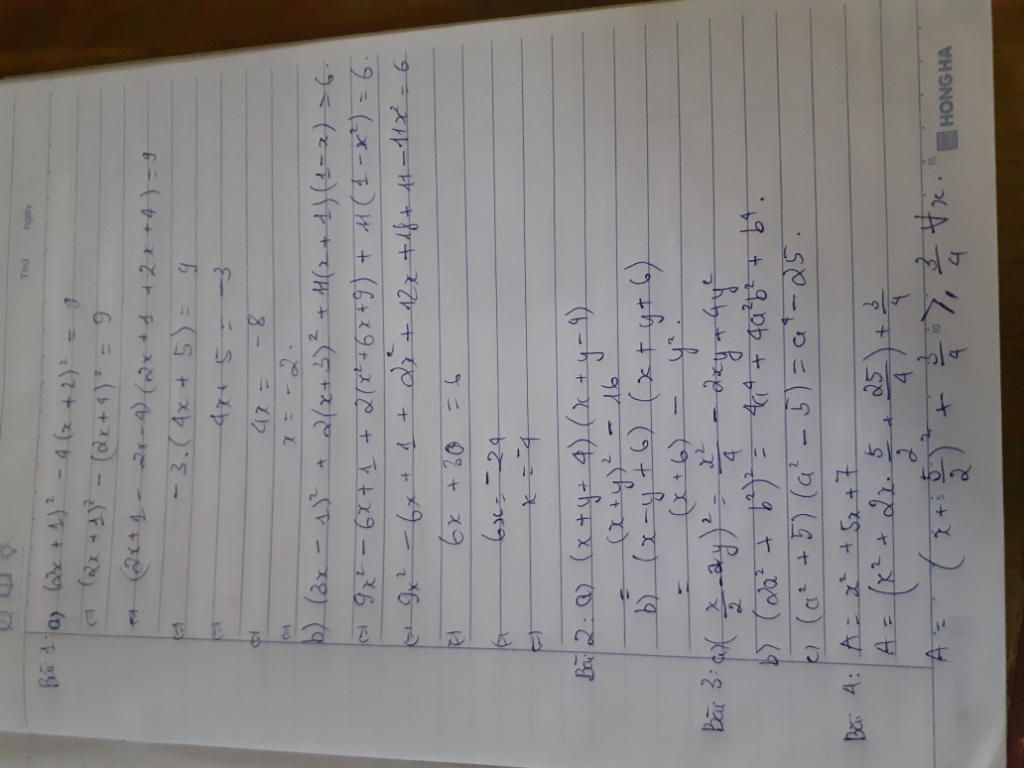 Thứ ngày
Bài 1: a) (2x+1)² - 4(x+2)² = 9
(=) (2x+1)² - (2x+4)² = 9
(=) (2x+1-2x-4)(2x+1+2x+4) = 9
(=) -3.(4x+5) = 9
(=) 4x+5 = -3
(=) 4x = -8
(=) x = -2.
b) (3x-1)² + 2(x+3)² + 11(x+1)(1-x) = 6.
(=) 9x² - 6x + 1 + 2(x²+6x+9) + 11(1-x²) = 6.
(=) 9x² - 6x + 1 + 2x² + 12x + 18 + 11 - 11x² = 6.
(=) 6x + 30 = 6
(=) 6x = -24
(=) x = -4
Bài 2: a) (x+y+4)(x+y-4)
= (x+y)² - 16
b) (x-y+6)(x+y+6)
= (x+6)² - y².
Bài 3: a) (x/2 - 2y)² = x²/4 - 2xy + 4y²
b) (2a² + b²)² = 4a⁴ + 4a²b² + b⁴.
c) (a²+5)(a²-5) = a⁴ - 25.
Bài 4: A = x² + 5x + 7
A = (x² + 2x.5/2 + 25/4) + 3/4
A = (x + 5/2)² + 3/4 ≥ 3/4 ∀x.
5 10 15
HONG HA